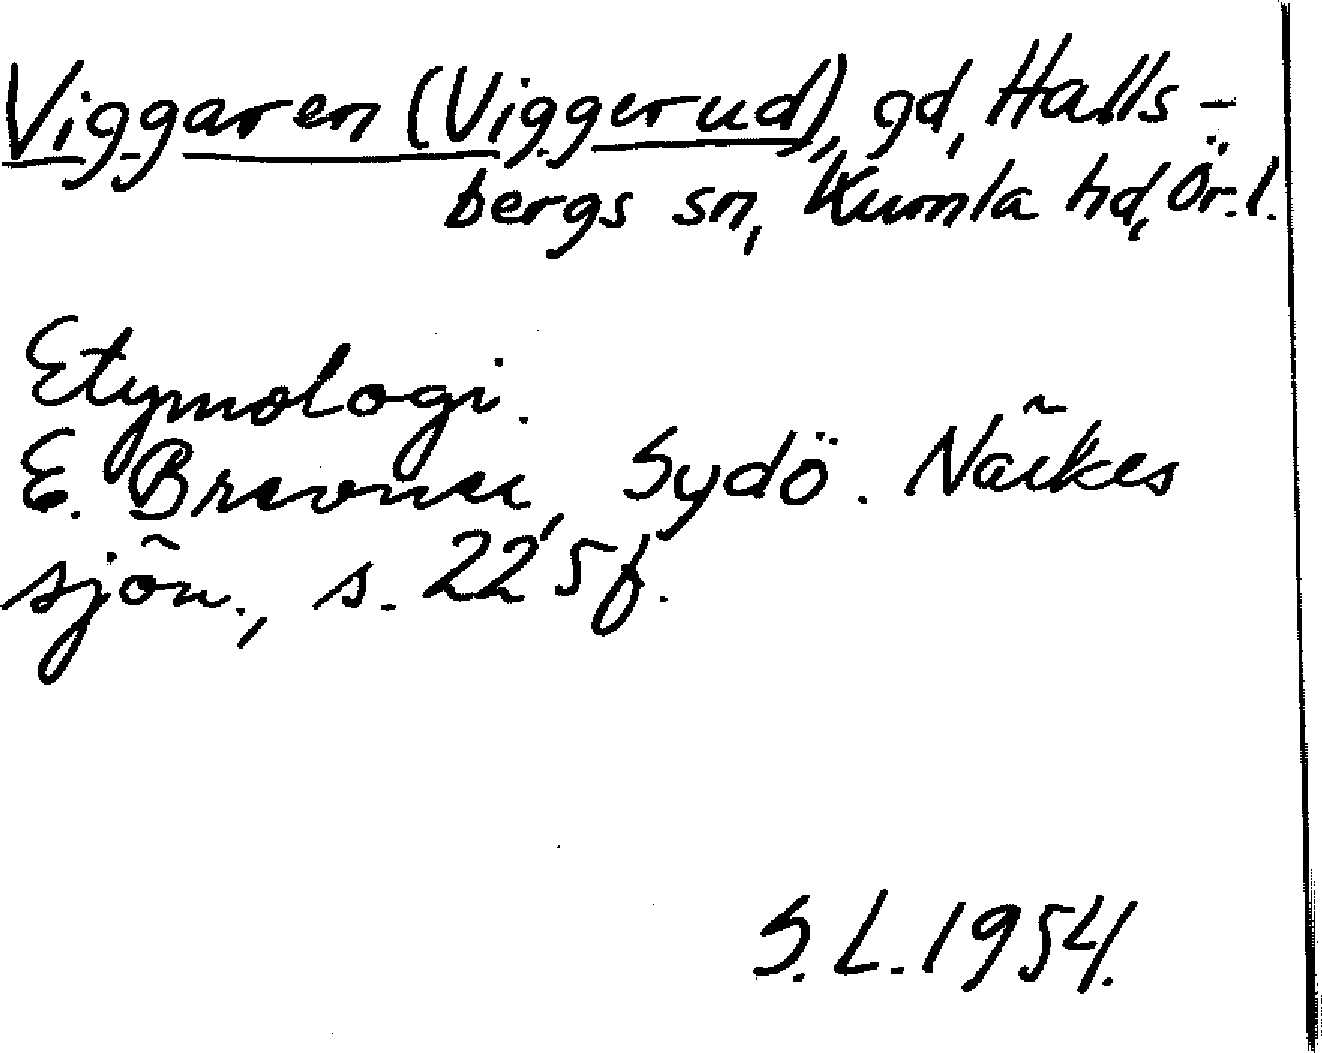 Viggaren (Viggerud), gd, Halls-
bergs sn, Kumla hd, Ör. l.
Etymologi.
E. Brevner, Sydö. Närkes
sjön., s. 225 f.
S. L. 1954.